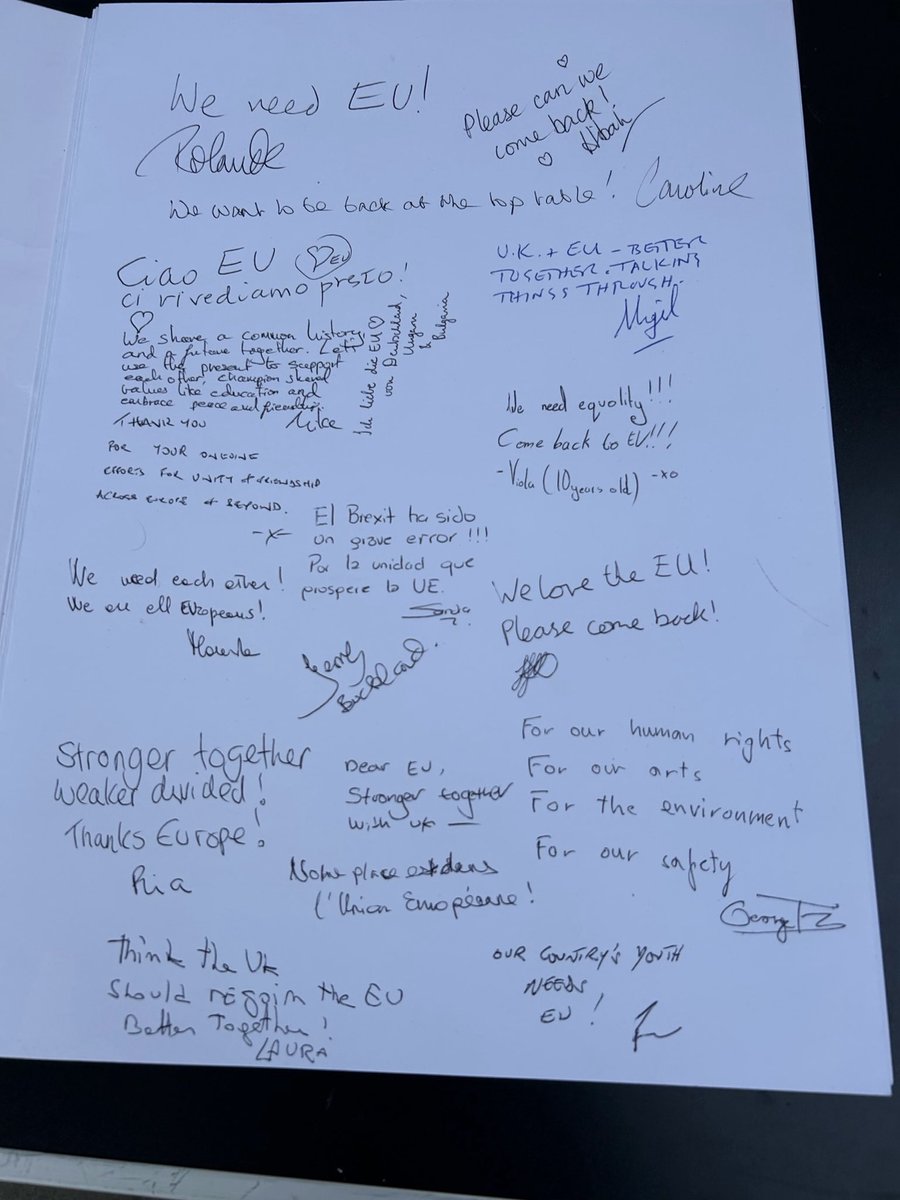 We need EU!
Please can we
come back!
We want to be back at the top table! Caroline
Ciao EU EU
ci rivediamo presto!
U.K. + EU - BETTER
TOGETHER. TALKING
THINGS THROUGH.
We share a common history,
and a future together. Let's
use the present to support
each other, champion shared
values like education and
embrace peace and friendship.
Mike
Ich liebe die EU
von Deutschland,
Ungarn
& Bulgaria
THANK YOU
FOR YOUR ONGOING
EFFORTS FOR UNITY & FRIENDSHIP
ACROSS EUROPE & BEYOND.
-x-
We need equality!!!
Come back to EU!!!
- Viola (10 years old) -xo
El Brexit ha sido
un grave error!!!
Por la unidad que
prospere la UE.
We need each other!
We are all EUropeans!
We love the EU!
Please come back!
Stronger together
weaker divided!
Thanks Europe!
Ria
Dear EU,
Stronger together
with
Notre place est dans
l'Union Européene!
For our human rights
For our arts
For the environment
For our safety
George
Think the UK
should rejoin the EU
Better Together!
LAURA
OUR COUNTRY'S YOUTH
NEEDS
EU!